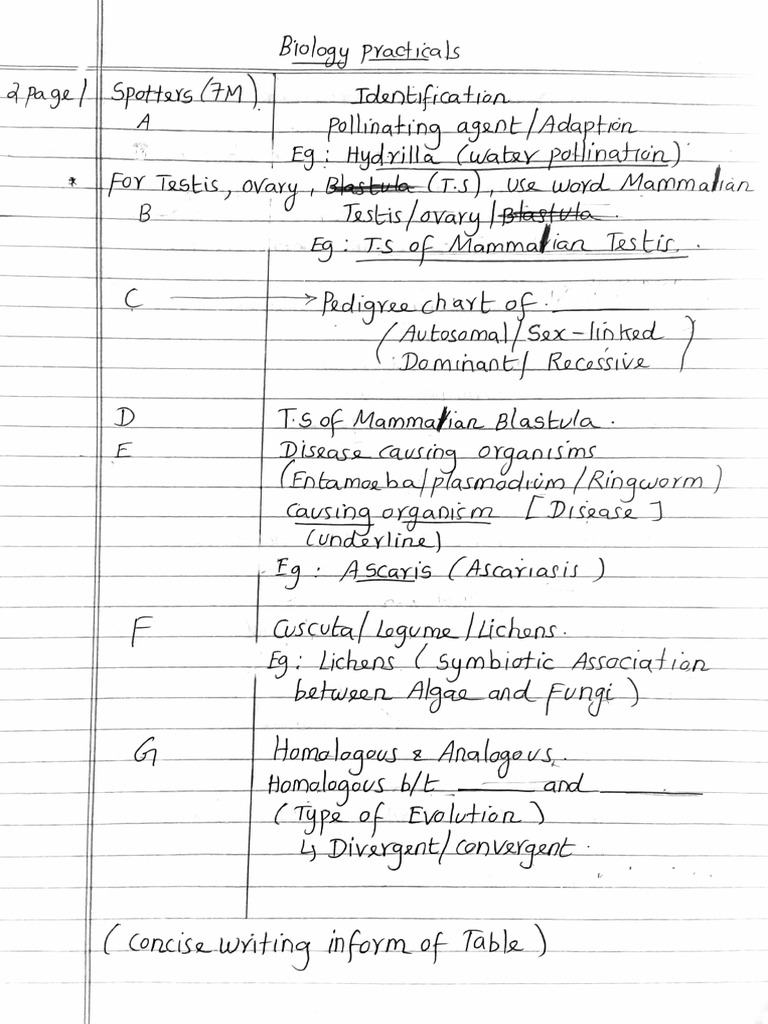 Biology practicals
2 page/ Spotters (7M) Identification
A pollinating agent/Adaption
Eg: Hydrilla (water pollination)
* For Testis, ovary, Blastula (T.S), use word Mammalian
B Testis/ovary/Blastula.
Eg: T.S of Mammalian Testis.
C → Pedigree chart of ______
(Autosomal/Sex-linked
Dominant/ Recessive)
D T.S of Mammalian Blastula.
E Disease causing organisms
(Entamoeba/plasmodium/Ringworm)
causing organism [Disease]
(underline)
Eg: Ascaris (Ascariasis)
F Cuscuta/Legume/Lichens.
Eg: Lichens (symbiotic Association
between Algae and Fungi)
G Homologous & Analogous.
Homologous b/t ______ and ______
(Type of Evolution)
↳ Divergent/convergent.
(concise writing inform of Table)